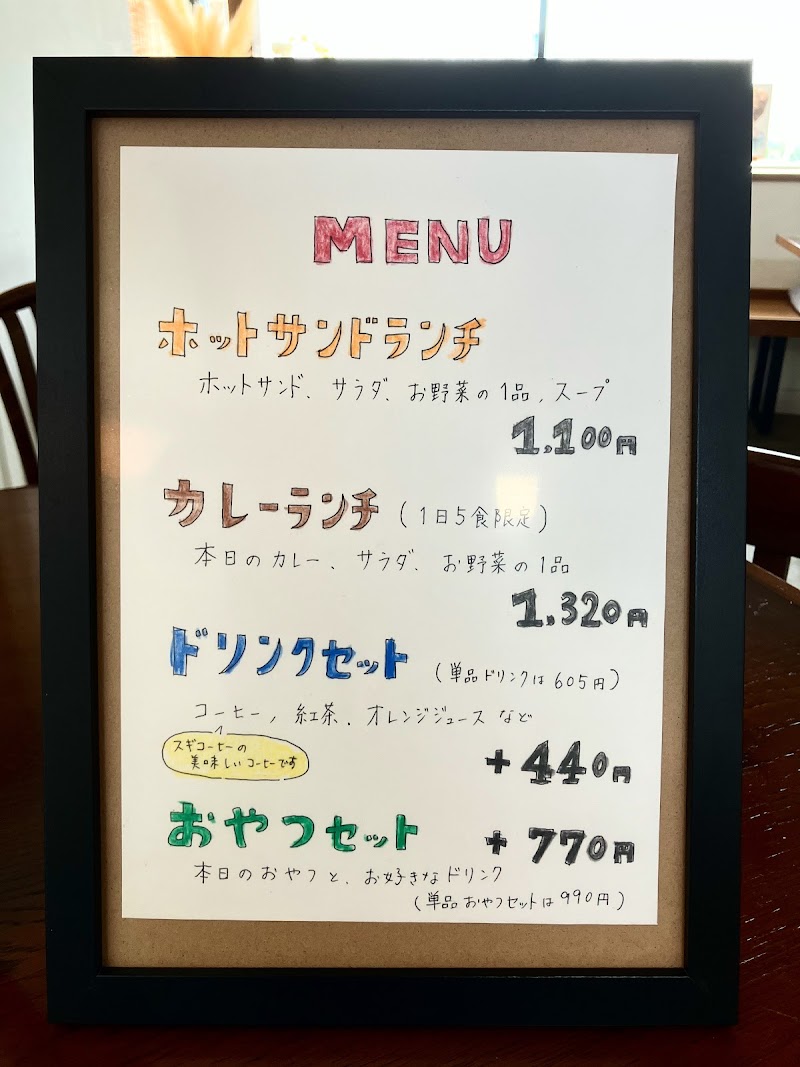 MENU
ホットサンドランチ
ホットサンド、サラダ、お野菜の1品、スープ
1,100円
カレーランチ (1日5食限定)
本日のカレー、サラダ、お野菜の1品
1,320円
ドリンクセット (単品ドリンクは605円)
コーヒー、紅茶、オレンジジュースなど
スギコーヒーの
美味しいコーヒーです
+440円
おやつセット +770円
本日のおやつと、お好きなドリンク
(単品おやつセットは990円)